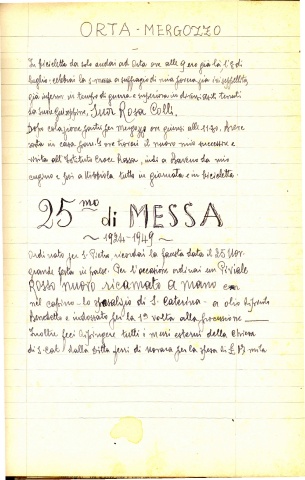 ORTA - MERGOZZO
In bicicletta da solo andai ad Orta ove alle 9 ero già là l'8 di
luglio - celebrai la S. messa a suffragio di una suora ivi seppellita
già inferm. in tempo di guerra e superiora in diversi
da Suore Giuseppine, Suor Rosa Colli.
Dopo colazione partii per Mergozzo ove giunsi alle 11.30. Avere
sosta in casa ove trovai il nuovo mio successore e
visita all'Istituto Croce Rossa, indi a Baveno da mio
cugino e poi a Nibbiola tutto in giornata e in bicicletta.
25mo di MESSA
~ 1924-1949 ~
Ordinato per S. Pietro ricordai la fausta data il 25 Nov.
grande festa in paese. Per l'occasione ordinai un Piviale
Rosso nuovo ricamato a mano con
nel capino - lo sposalizio di S. Caterina - a olio dipinto
Benedetto e indossato per la 1a volta alla processione
Inoltre feci dipingere tutti i muri esterni della chiesa
di S. Cat. dalla Ditta di Novara per la spesa di £ mila